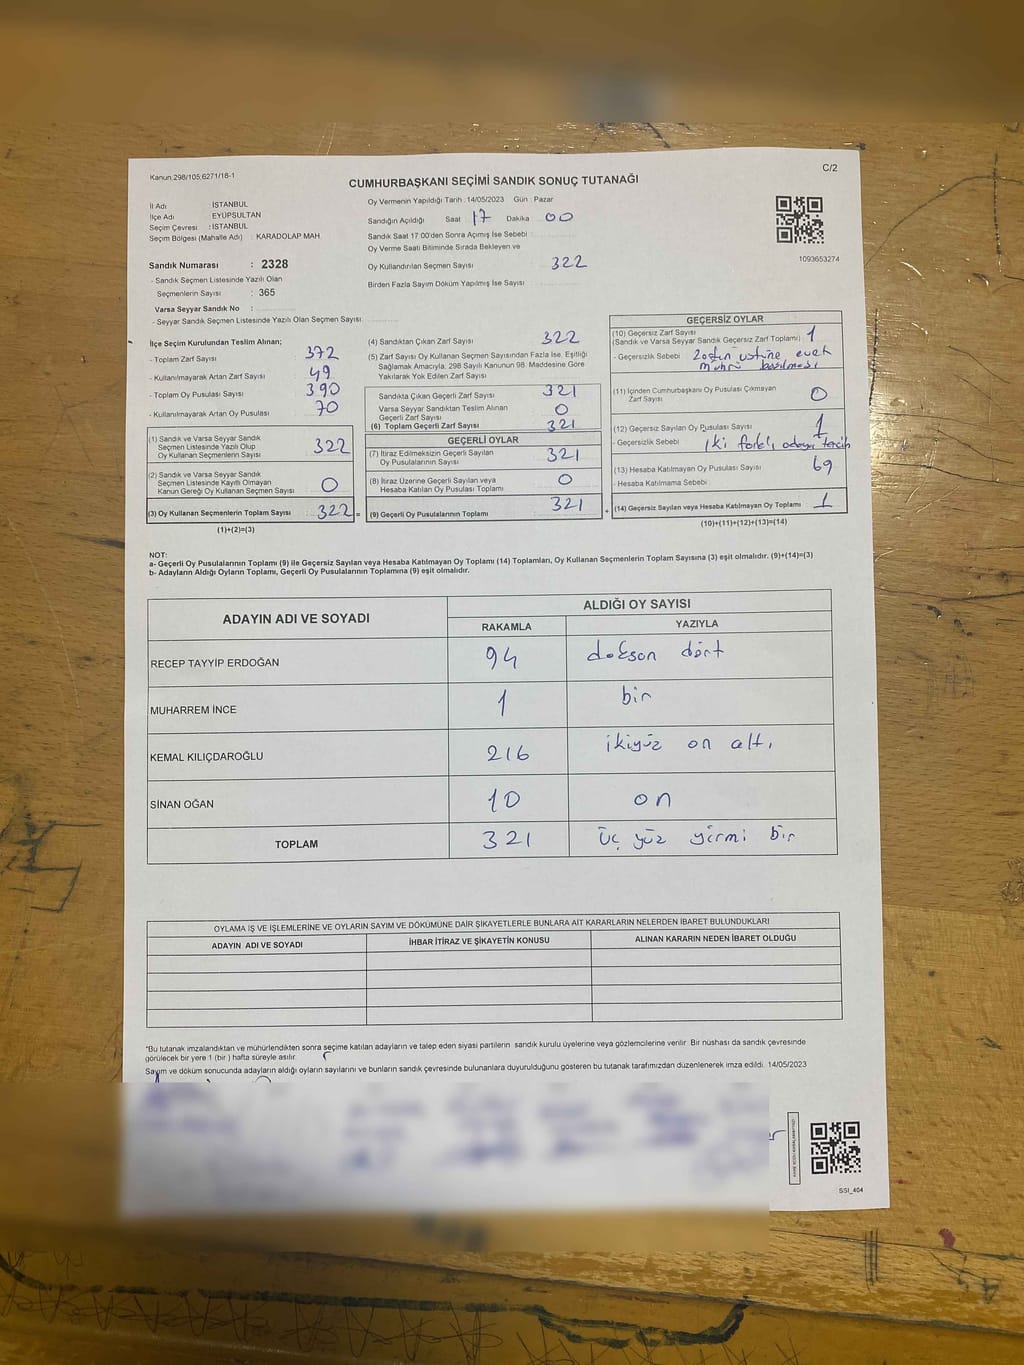 Kanun:298/105;6271/18-1
C/2
CUMHURBAŞKANI SEÇİMİ SANDIK SONUÇ TUTANAĞI
İl Adı : İSTANBUL
İlçe Adı : EYÜPSULTAN
Seçim Çevresi : İSTANBUL
Seçim Bölgesi (Mahalle Adı) : KARADOLAP MAH.
Oy Vermenin Yapıldığı Tarih : 14/05/2023 Gün : Pazar
Sandığın Açıldığı Saat 17 Dakika 00
Sandık Saat 17:00'den Sonra Açımış İse Sebebi
Oy Verme Saati Bitiminde Sırada Bekleyen ve
Oy Kullandırılan Seçmen Sayısı 322
Birden Fazla Sayım Döküm Yapılmış İse Sayısı
1093653274
Sandık Numarası : 2328
- Sandık Seçmen Listesinde Yazılı Olan
Seçmenlerin Sayısı : 365
Varsa Seyyar Sandık No :
- Seyyar Sandık Seçmen Listesinde Yazılı Olan Seçmen Sayısı:
İlçe Seçim Kurulundan Teslim Alınan;
- Toplam Zarf Sayısı 372
- Kullanılmayarak Artan Zarf Sayısı 49
- Toplam Oy Pusulası Sayısı 390
- Kullanılmayarak Artan Oy Pusulası 70
(1) Sandık ve Varsa Seyyar Sandık
Seçmen Listesinde Yazılı Olup
Oy Kullanan Seçmenlerin Sayısı 322
(2) Sandık ve Varsa Seyyar Sandık
Seçmen Listesinde Kayıtlı Olmayan
Kanun Gereği Oy Kullanan Seçmen Sayısı 0
(3) Oy Kullanan Seçmenlerin Toplam Sayısı 322 =
(1)+(2)=(3)
(4) Sandıktan Çıkan Zarf Sayısı 322
(5) Zarf Sayısı Oy Kullanan Seçmen Sayısından Fazla İse, Eşitliği
Sağlamak Amacıyla, 298 Sayılı Kanunun 98. Maddesine Göre
Yakılarak Yok Edilen Zarf Sayısı
Sandıkta Çıkan Geçerli Zarf Sayısı 321
Varsa Seyyar Sandıktan Teslim Alınan
Geçerli Zarf Sayısı 0
(6) Toplam Geçerli Zarf Sayısı 321
GEÇERLİ OYLAR
(7) İtiraz Edilmeksizin Geçerli Sayılan
Oy Pusulalarının Sayısı 321
(8) İtiraz Üzerine Geçerli Sayılan veya
Hesaba Katılan Oy Pusulası Toplamı 0
(9) Geçerli Oy Pusulalarının Toplamı 321 +
GEÇERSİZ OYLAR
(10) Geçersiz Zarf Sayısı
(Sandık ve Varsa Seyyar Sandık Geçersiz Zarf Toplamı) 1
- Geçersizlik Sebebi Zarfın üstüne evet
mührü basılması
(11) İçinden Cumhurbaşkanı Oy Pusulası Çıkmayan
Zarf Sayısı 0
(12) Geçersiz Sayılan Oy Pusulası Sayısı 1
- Geçersizlik Sebebi İki farklı adayı tercih
(13) Hesaba Katılmayan Oy Pusulası Sayısı 69
- Hesaba Katılmama Sebebi
(14) Geçersiz Sayılan veya Hesaba Katılmayan Oy Toplamı 1
(10)+(11)+(12)+(13)=(14)
NOT:
a- Geçerli Oy Pusulalarının Toplamı (9) ile Geçersiz Sayılan veya Hesaba Katılmayan Oy Toplamı (14) Toplamları, Oy Kullanan Seçmenlerin Toplam Sayısına (3) eşit olmalıdır. (9)+(14)=(3)
b- Adayların Aldığı Oyların Toplamı, Geçerli Oy Pusulalarının Toplamına (9) eşit olmalıdır.
ADAYIN ADI VE SOYADI
ALDIĞI OY SAYISI
RAKAMLA YAZIYLA
RECEP TAYYİP ERDOĞAN 94 doksan dört
MUHARREM İNCE 1 bir
KEMAL KILIÇDAROĞLU 216 ikiyüz on altı
SİNAN OĞAN 10 on
TOPLAM 321 üç yüz yirmi bir
OYLAMA İŞ VE İŞLEMLERİNE VE OYLARIN SAYIM VE DÖKÜMÜNE DAİR ŞİKAYETLERLE BUNLARA AİT KARARLARIN NELERDEN İBARET BULUNDUKLARI
ADAYIN ADI VE SOYADI İHBAR İTİRAZ VE ŞİKAYETİN KONUSU ALINAN KARARIN NEDEN İBARET OLDUĞU
*Bu tutanak imzalandıktan ve mühürlendikten sonra seçime katılan adayların ve talep eden siyasi partilerin sandık kurulu üyelerine veya gözlemcilerine verilir. Bir nüshası da sandık çevresinde
görülecek bir yere 1 (bir) hafta süreyle asılır.
Sayım ve döküm sonucunda adayların aldığı oyların sayılarını ve bunların sandık çevresinde bulunanlara duyurulduğunu gösteren bu tutanak tarafımızdan düzenlenerek imza edildi. 14/05/2023
SSI_404